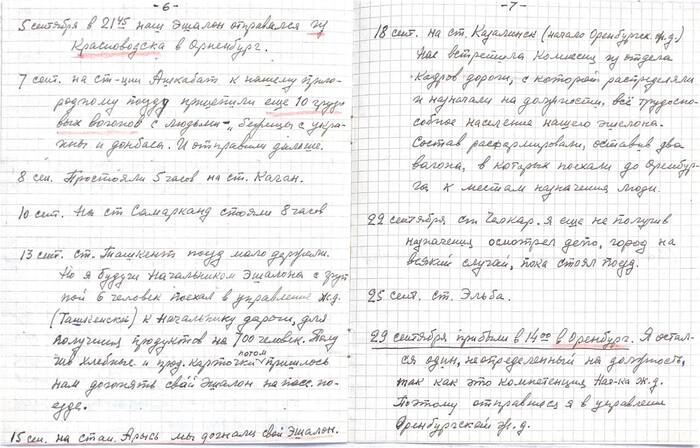 - 6 -
5 сентября в 21⁴⁵ наш Эшалон отправился из
Красноводска в Оренбург.
7 сент. на ст-ции Ашкабат к нашему приго-
родному поезду прицепили еще 10 груз-
вых вагонов с людьми - беженцы с укра-
ины и донбаса. И отправили дальше.
8 сен. Простояли 5 часов на ст. Каган.
10 сент. На ст Самарканд стояли 8 часов
13 сент. ст. Ташкент поезд мало держали.
Но я будучи Начальником Эшалона с груп-
пой 6 человек поехал в управление ж.д.
(Ташкенской) к Начальнику дороги, для
получения продуктов на 700 человек. Полу
чив хлебные и прод. карточки потом пришлось
нам догонять свой Эшалон на пасс. по-
езде.
15 сен. на стан. Арысь мы догнали свой Эшалон.
- 7 -
18 сент. на ст. Казалинск (начало Оренбургск. ж.д.)
Нас встретила Комиссия из отдела
Кадров дороги, с которой распределяли
и назначали на должности, всё трудоспо-
собное население нашего эшелона.
Состав расформировали, оставив два
вагона, в которых поехали до Оренбур-
га к местам назначения люди.
22 сентября ст. Челкар. я еще не получив
назначения осмотрел депо, город на
всякий случай, пока стоял поезд.
25 сент. ст. Эльба.
29 сентября прибыли в 14⁰⁰ в Оренбург. Я остал-
ся один, неопределенный на должность,
так как это компетенция Нач-ка ж.д.
Поэтому отправился я в управление
Оренбургской ж.д.